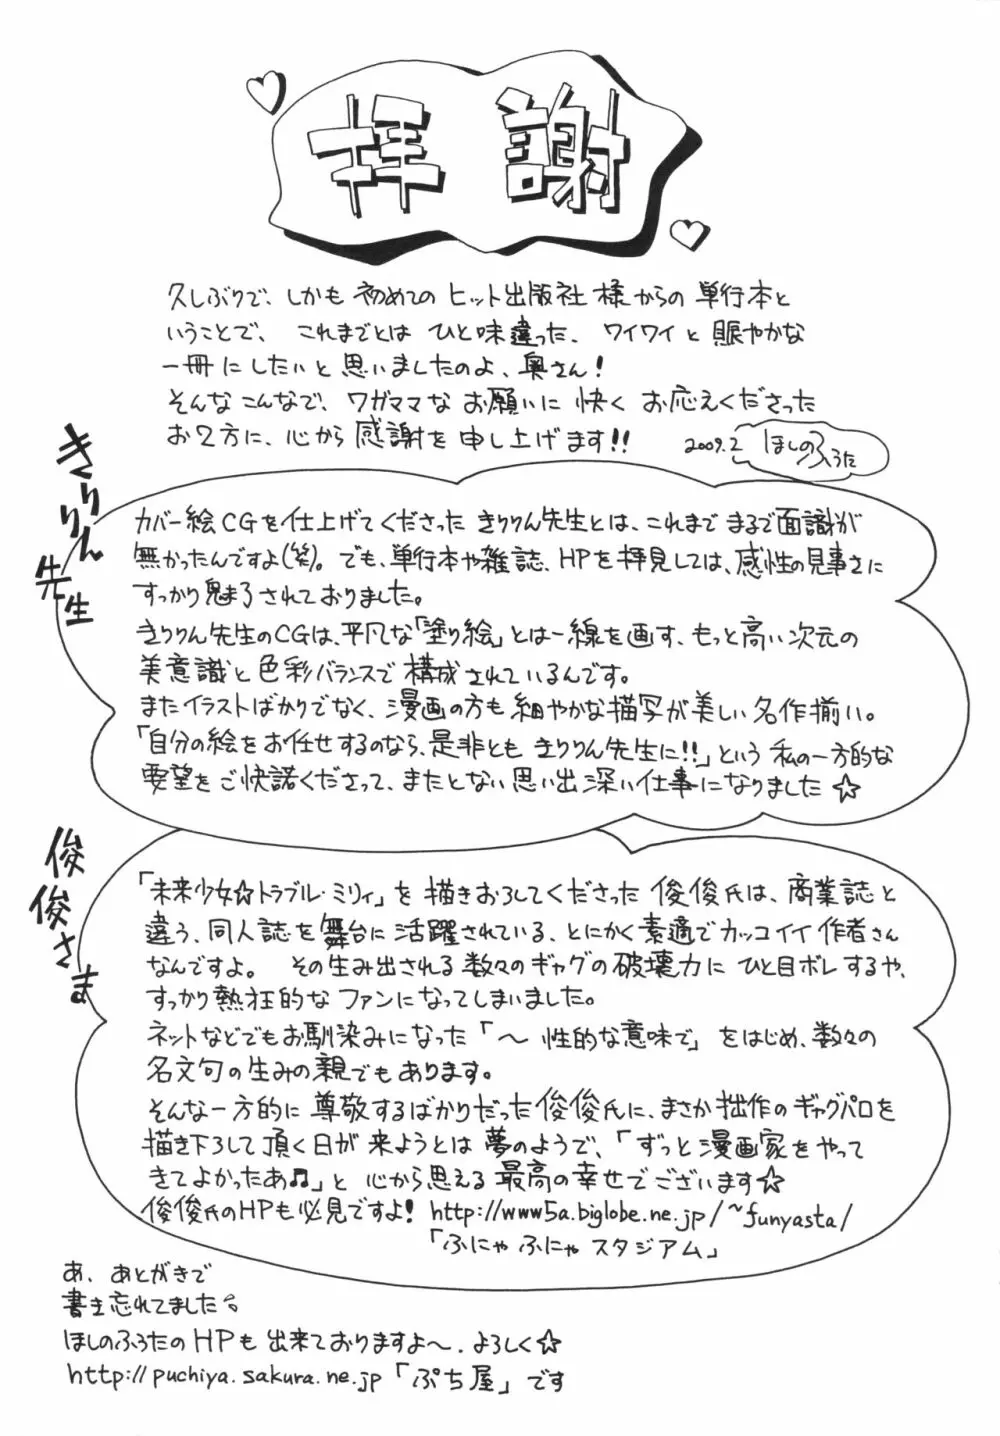 拝謝
久しぶりで、しかも初めてのヒット出版社様からの単行本と
いうことで、これまでとはひと味違った、ワイワイと賑やかな
一冊にしたいと思いましたのよ、奥さん!
そんなこんなで、ワガママなお願いに快くお応えくださった
お2方に、心から感謝を申し上げます!!
2009.2 ほしのふうた
きりりん先生
カバー絵CGを仕上げてくださったきりりん先生とは、これまでまるで面識が
無かったんですよ(笑)。でも、単行本や雑誌、HPを拝見しては、感性の見事さに
すっかり魅了されておりました。
きりりん先生のCGは、平凡な「塗り絵」とは一線を画す、もっと高い次元の
美意識と色彩バランスで構成されているんです。
またイラストばかりでなく、漫画の方も細やかな描写が美しい名作揃い。
「自分の絵をお任せするのなら、是非ともきりりん先生に!!」という私の一方的な
要望をご快諾くださって、またとない思い出深い仕事になりました☆
俊俊さま
「未来少女☆トラブル・ミリィ」を描きおろしてくださった俊俊氏は、商業誌と
違う、同人誌を舞台に活躍されている、とにかく素適でカッコイイ作者さん
なんですよ。その生み出される数々のギャグの破壊力にひと目ボレするや、
すっかり熱狂的なファンになってしまいました。
ネットなどでもお馴染みになった「〜性的な意味で」をはじめ、数々の
名文句の生みの親でもあります。
そんな一方的に尊敬するばかりだった俊俊氏に、まさか拙作のギャグパロを
描き下ろして頂く日が来ようとは夢のようで、「ずっと漫画家をやって
きてよかったあ♫」と心から思える最高の幸せでございます☆
俊俊氏のHPも必見ですよ! http://www5a.biglobe.ne.jp/~funyasta/
「ふにゃふにゃスタジアム」
あ、あとがきで
書き忘れてました
ほしのふうたのHPも出来ておりますよ〜。よろしく☆
http://puchiya.sakura.ne.jp「ぷち屋」です